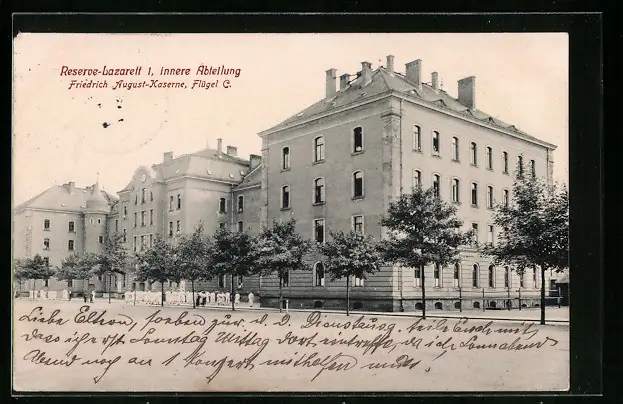 Reserve-Lazarett 1, innere Abteilung
Friedrich August-Kaserne, Flügel C.
Liebe Eltern, soeben zur d. D. Dienstag, teile Euch mit,
dass ich erst Sonntag Mittag dort eintreffe, da ich Sonnabend
Abend noch an 1 Konzert mithelfen muß.